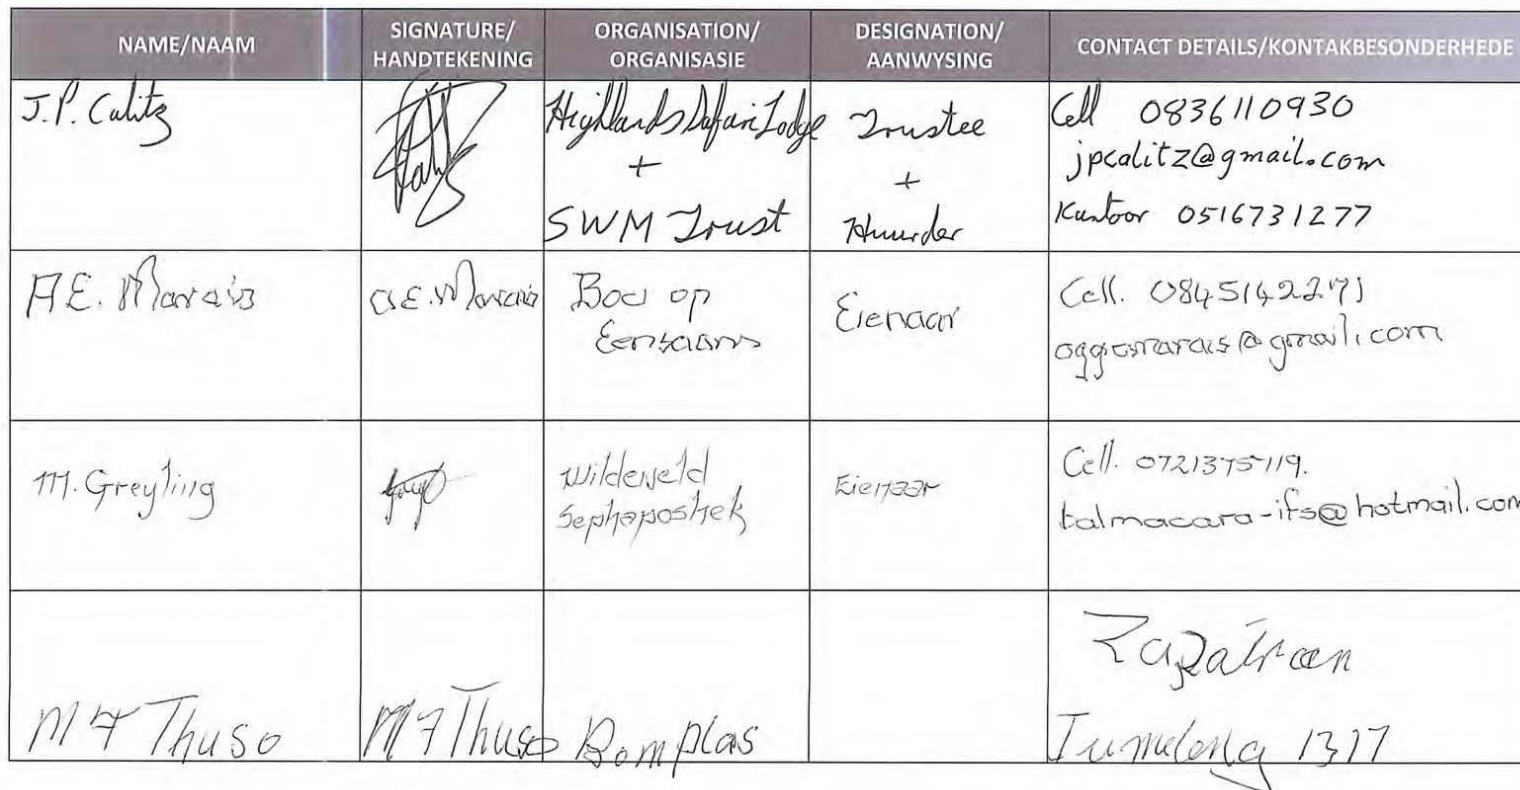 NAME/NAAM
SIGNATURE/
HANDTEKENING
ORGANISATION/
ORGANISASIE
DESIGNATION/
AANWYSING
CONTACT DETAILS/KONTAKBESONDERHEDE
J.P. Calitz
Highlands Safari Lodge
+
SWM Trust
Trustee
+
Huurder
Cell 0836110930
jpcalitz@gmail.com
Kantoor 0516731277
A.E. Marais
a.E. Marais
Boa op
Eensaam
Eienaar
Cell. 0845142271
oggiemarais@gmail.com
M. Greyling
Wildeveld
Sephaposhek
Eienaar
Cell. 0721375119.
talmacara-ifs@hotmail.com
M F Thuso
M F Thuso
Bomplas
Zapatroen
Tumelong 1317